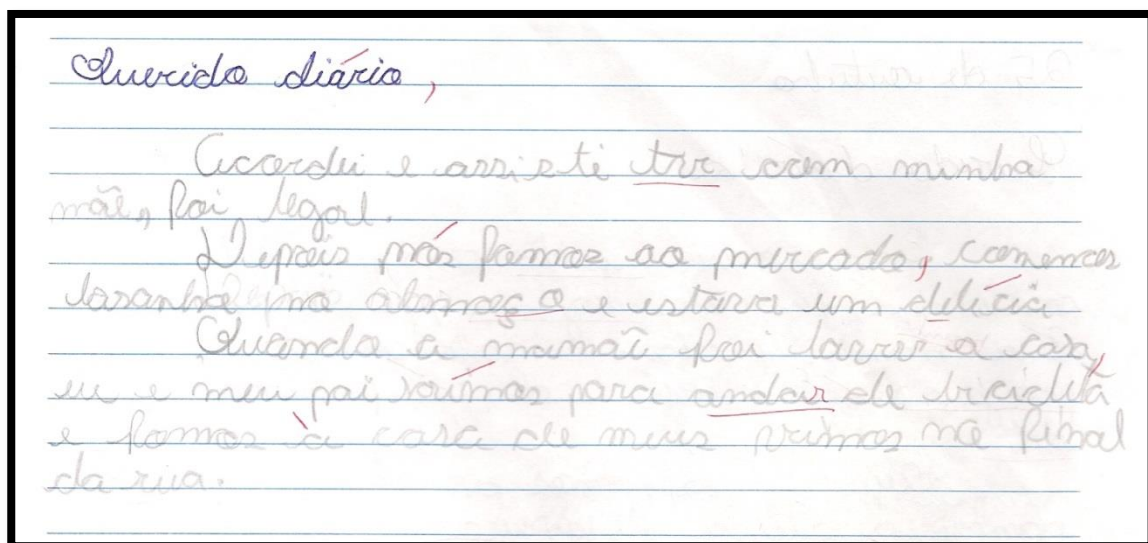 Querido diário,
Acordei e assisti tv com minha
mãe, foi legal.
Depois nós fomos ao mercado, comemos
lasanha no almoço e estava um delícia
Quando a mamãe foi lavar a casa,
eu e meu pai saímos para andar de bicicleta
e fomos à casa de meus primos no final
da rua.